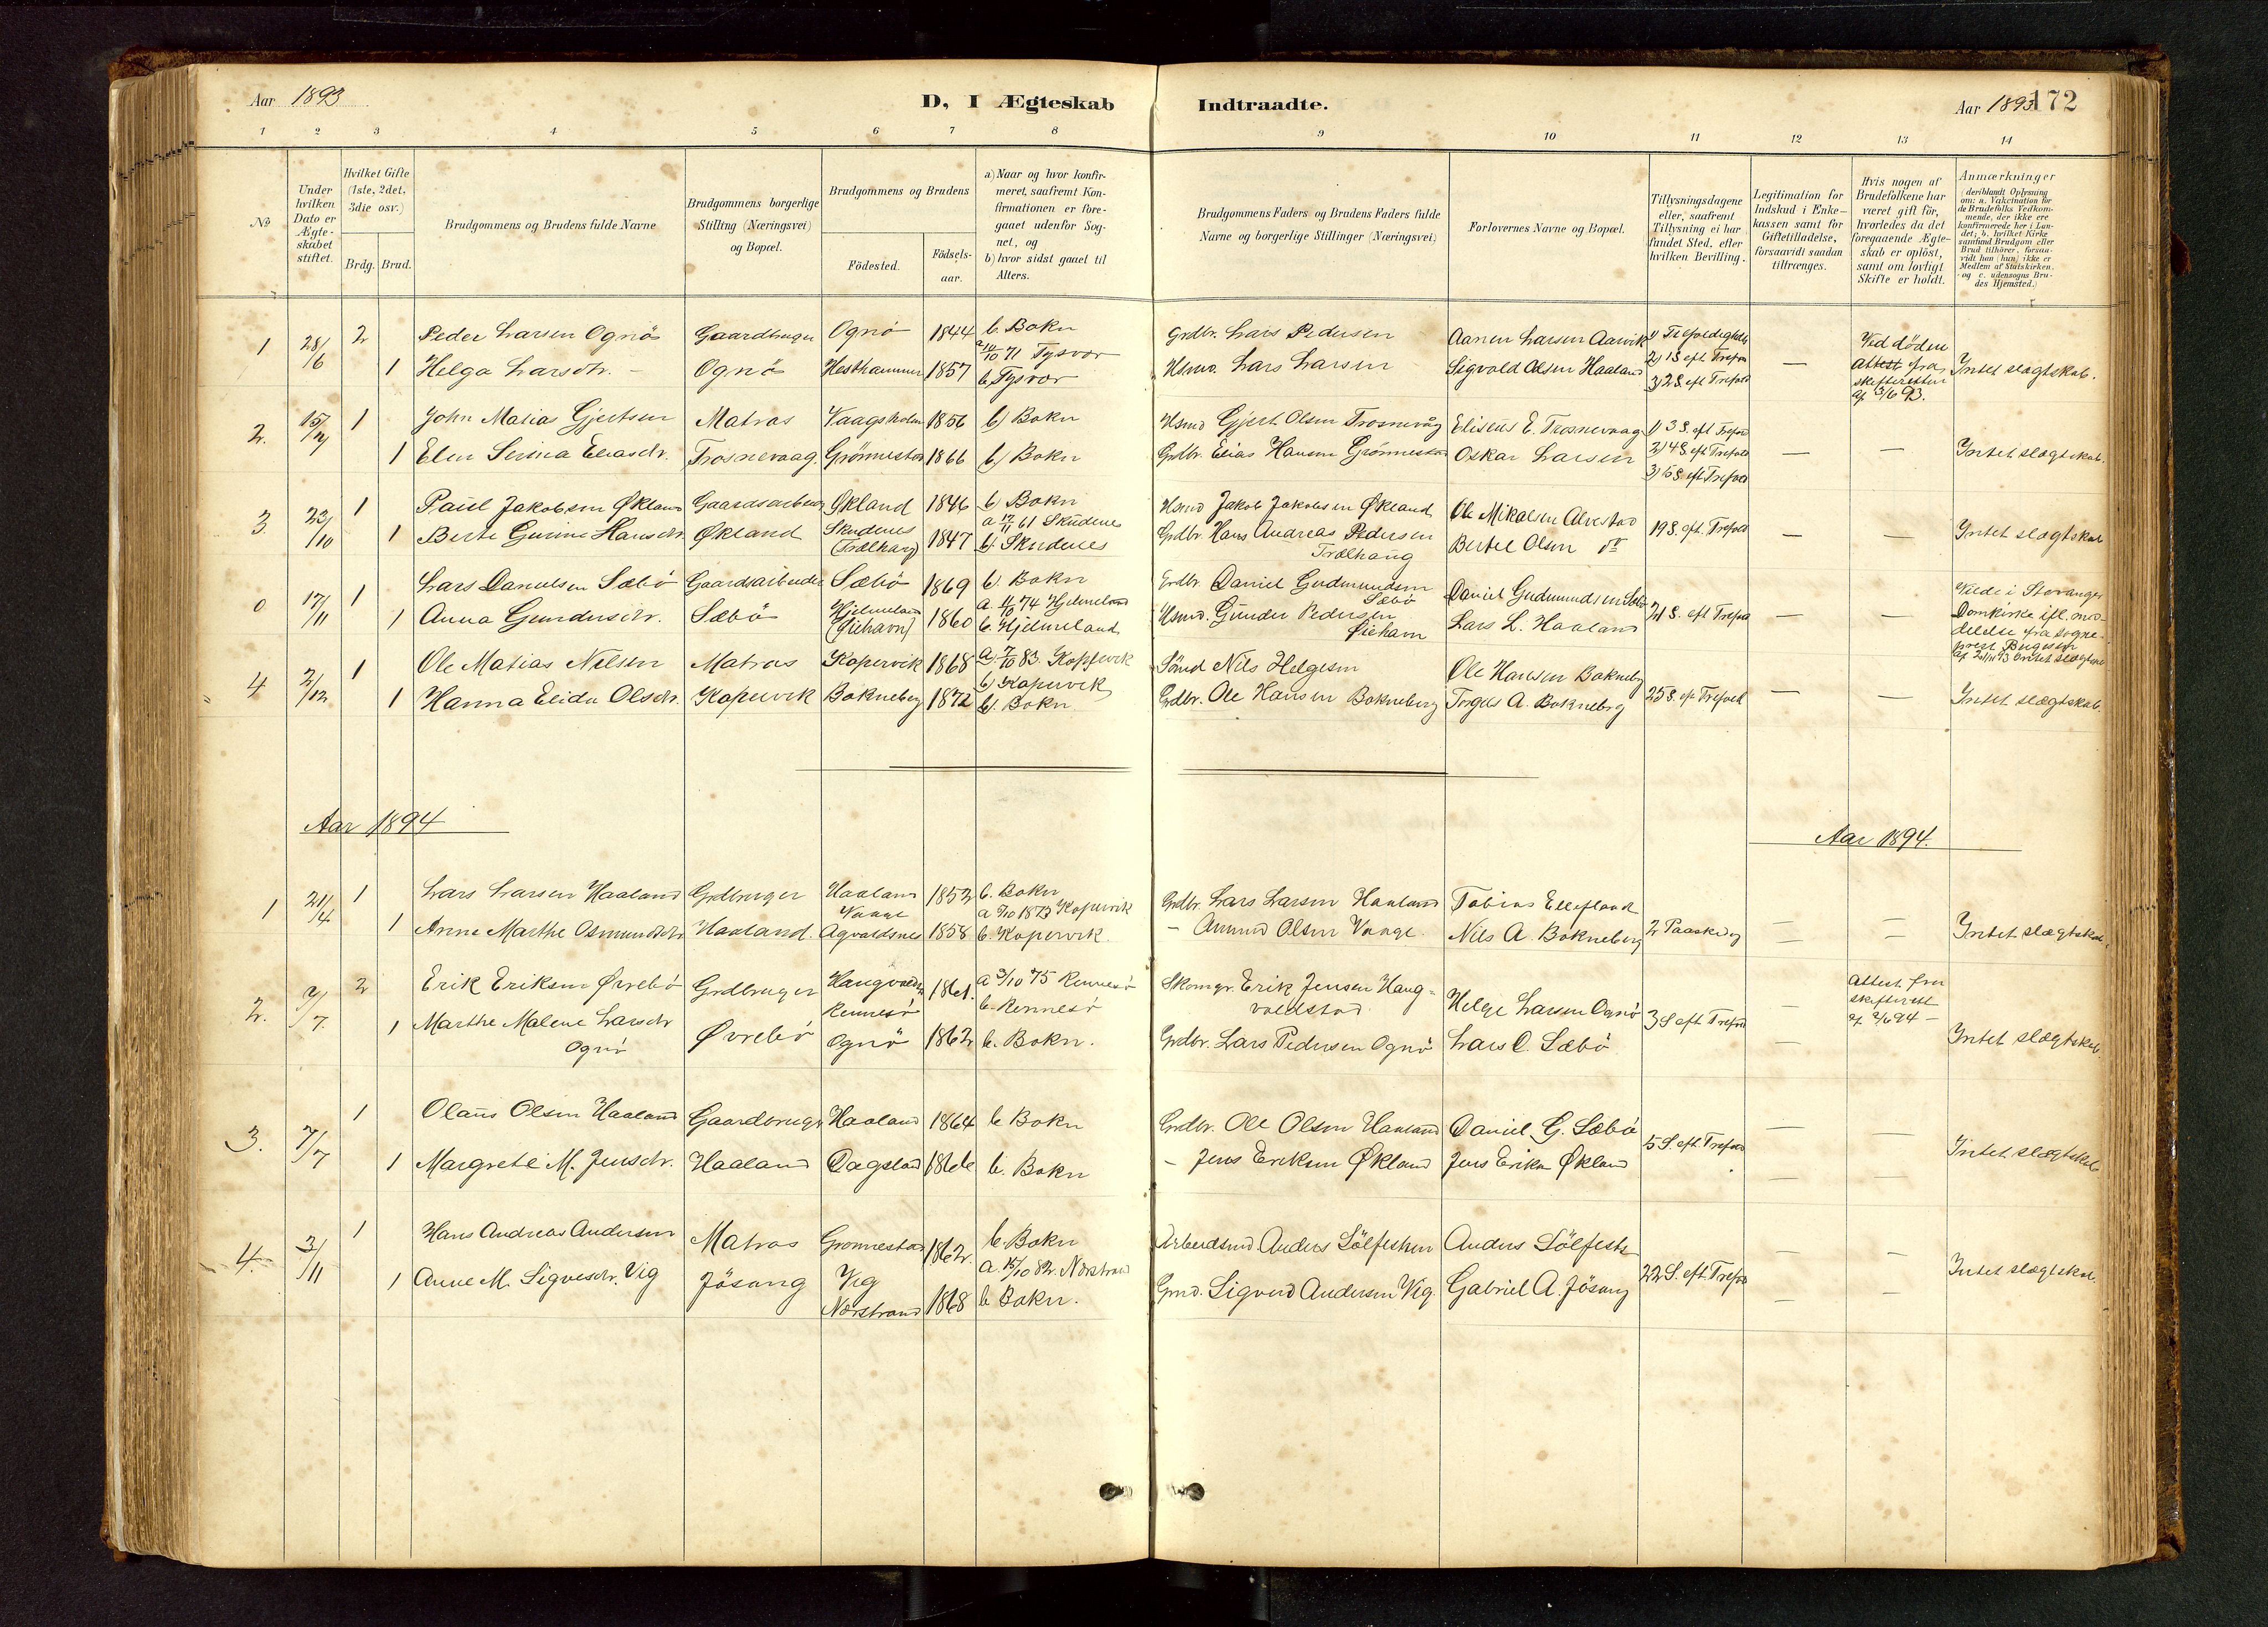 Aar 1893
D, I Ægteskab Indtraadte.
Aar 1893 172
1 2 3 4 5 6 7 8 9 10 11 12 13 14
No
Under hvilken Dato er Ægte-skabet stiftet.
Hvilket Gifte (1ste, 2det, 3die osv.)
Brdg. Brud.
Brudgommens og Brudens fulde Navne
Brudgommens borgerlige Stilling (Næringsvei) og Bopæl.
Brudgommens og Brudens
Födested.
Födsels-aar.
a) Naar og hvor konfir-meret, saafremt Kon-firmationen er fore-gaaet udenfor Sog-net, og
b) hvor sidst gaaet til Alters.
Brudgommens Faders og Brudens Faders fulde Navne og borgerlige Stillinger (Næringsvei)
Forlovernes Navne og Bopæl.
Tillysningsdagene eller, saafremt Tillysning ei har fundet Sted, efter hvilken Bevilling.
Legitimation for Indskud i Enke-kassen samt for Giftetilladelse, forsaavidt saadan tiltrænges.
Hvis nogen af Brudefolkene har været gift för, hvorledes da det foregaaende Ægte-skab er oplöst, samt om lovligt Skifte er holdt.
Anmærkninger (deriblandt Oplysning om: a. Vakcination for de Brudefolks Vedkom-mende, der ikke ere konfirmerede her i Lan-det; b. hvilket Kirke samfund Brudgom eller Brud tilhörer, forsaa-vidt han (hun) ikke er Medlem af Statskirken og c. udensogns Bru-des Hjemsted.)
1 28/6 2 Peder Larsen Ognö Gaardbruger Ognö 1844 b. Bokn Grdbr. Lars Pedersen Aanen Larsen Aarvik 1) Trefoldighds Ved döden
1 Helga Larsdtr. Ognö Hesthammer 1857 71 Tysvor b. Tysvor Hsmd. Lars Larsen Sigvald Olsen Haaland 2) 1 S. eft. Trefol 3) 2 S. eft Trefold — Attest fra skifteretten af 3/6 93. Intet slægtskab.
2. 15/7 1 John Matias Gjertsen Matros Vaagsholm 1856 b) Bokn Hsmd Gjert Olsen Trosnevåg Eliseus E. Trosnevaag 1) 3 S. eft Trefold
1 Elen Serina Eliasdr. Trosnevaag. Grönnestad 1866 b) Bokn Grdbr. Elias Hansen Grönnestad Oskar Larsen 2) 4 S. eft Trefold 3) 5 S. eft Trefold — — Intet slægtskab.
3 23/10 1 Paul Jakobsen Økland Gaardsarbeider Økland 1846 b) Bokn Hsmd Jakob Jakobsen Økland Ole Mikalsen Alvestad
1 Berte Gurine Hansdr Økland Skudenes (Trælhaug) 1847 a 61 Skudenes b). Skudenes Grdbr. Hans Andreas Pedersen Trælhaug Bertel Olsen do 19 S. eft. Trefold — — Intet slægtskab
0 17/11 1 Lars Danielsen Sæbö Gaardsarbeider Sæbö 1869 b. Bokn Grdbr. Daniel Gudmundsen Sæbö Daniel Gudmundsen Sæbö
1 Anna Gundersdr. Sæbö Hjelmeland 1860 a. 74 Hjelmeland b. Hjelmeland Hsmd. Gunder Pedersen Lars L. Haaland 21 S. eft Trefold — — Viede i Stavanger Domkirke ifl. med-delelse fra sogne-prest
4 2/12 1 Ole Matias Nilsen Matros Kopervik 1868 a. 7/10 83. Kopervik b) Kopervik Sömd Nils Helgesen Ole Hansen Bokneberg
1 Hanna Elida Olsdr. Kopervik Bokneberg 1872 b). Bokn Grdbr. Ole Hansen Bokneberg Torges A. Bokneberg 25 S. eft Trefold — — Intet slægtskab.
Aar 1894
Aar 1894.
1 21/4 1 Lars Larsen Haaland Grdbruger Haaland 1853 b. Bokn Grdbr. Lars Larsen Haaland Tobias Ellefland
1 Anne Marthe Osmundsdr Haaland. Vaage Agvaldsnes 1858 a 1873 Kopervik b. Kopervik. — Amund Olsen Vaage. Nils A. Bokneberg 2 Paaskedag — — Intet slægtskab.
2. 7/7. 2 Erik Eriksen Øvrebö Grdbruger Rennesö 1861. a 3/10 75 Rennesö b. Rennesö Skomgr. Erik Jensen Haug-valdstad Helge Larsen Ognö — Attest fra skifterett af 2/6 94 —
1 Marthe Malene Larsdr Ognö Øvrebö Ognö 1862 b. Bokn. Grdbr. Lars Pedersen Ognö Lars O. Sæbö 3 S eft Trefold — Intet slægtskab.
3. 7/7 1 Olaus Olsen Haaland Gaardbruger Haaland 1864 b Bokn Grdbr. Ole Olsen Haaland Daniel G. Sæbö — —
1 Margrete M. Jensdr. Haaland Dagslad 1866 b. Bokn — Jens Eriksen Økland Jens Eriksen Økland 5 S. eft Trefold — — Intet slægtskab
4. 3/11 1 Hans Andreas Andersen Matros Grönnestad 1862. b. Bokn Arbeidsmd Anders Sölfesten Anders Sölfesten — —
1 Anne M. Sigvesdr. Vig Jösang Vig Nærstrand 1868 a. 15/10 82. Nærstrand b Bokn. Gmd. Sigvard Andersen Vig. Gabriel A. Jösang 22 S. eft. Trefold — — Intet slægtskab.